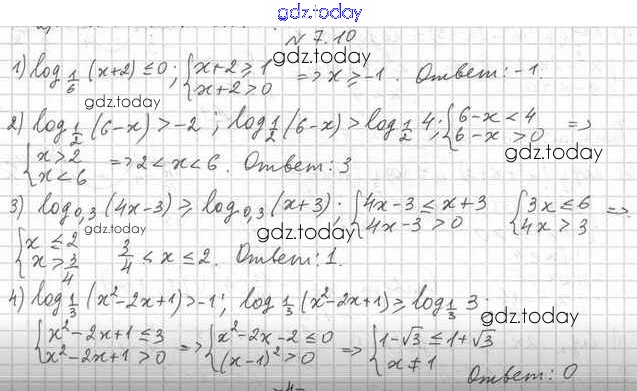 gdz.today
N 7.10
gdz.today
1) log_{1/6} (x+2) ≤ 0; { x+2 ≥ 1 x+2 > 0 => x ≥ -1. Ответ: -1.
gdz.today
2) log_{1/2} (6-x) > -2; log_{1/2} (6-x) > log_{1/2} 4; { 6-x < 4 6-x > 0 =>
gdz.today
{ x > 2 x < 6 => 2 < x < 6. Ответ: 3
3) log_{0,3} (4x-3) ≥ log_{0,3} (x+3); { 4x-3 ≤ x+3 4x-3 > 0 { 3x ≤ 6 4x > 3 =>
gdz.today gdz.today
{ x ≤ 2 x > 3/4 3/4 < x ≤ 2. Ответ: 1.
4) log_{1/3} (x²-2x+1) > -1; log_{1/3} (x²-2x+1) ≥ log_{1/3} 3
gdz.today
{ x²-2x+1 ≤ 3 x²-2x+1 > 0 => { x²-2x-2 ≤ 0 (x-1)² > 0 => { 1-√3 ≤ 1+√3 x ≠ 1
Ответ: 0